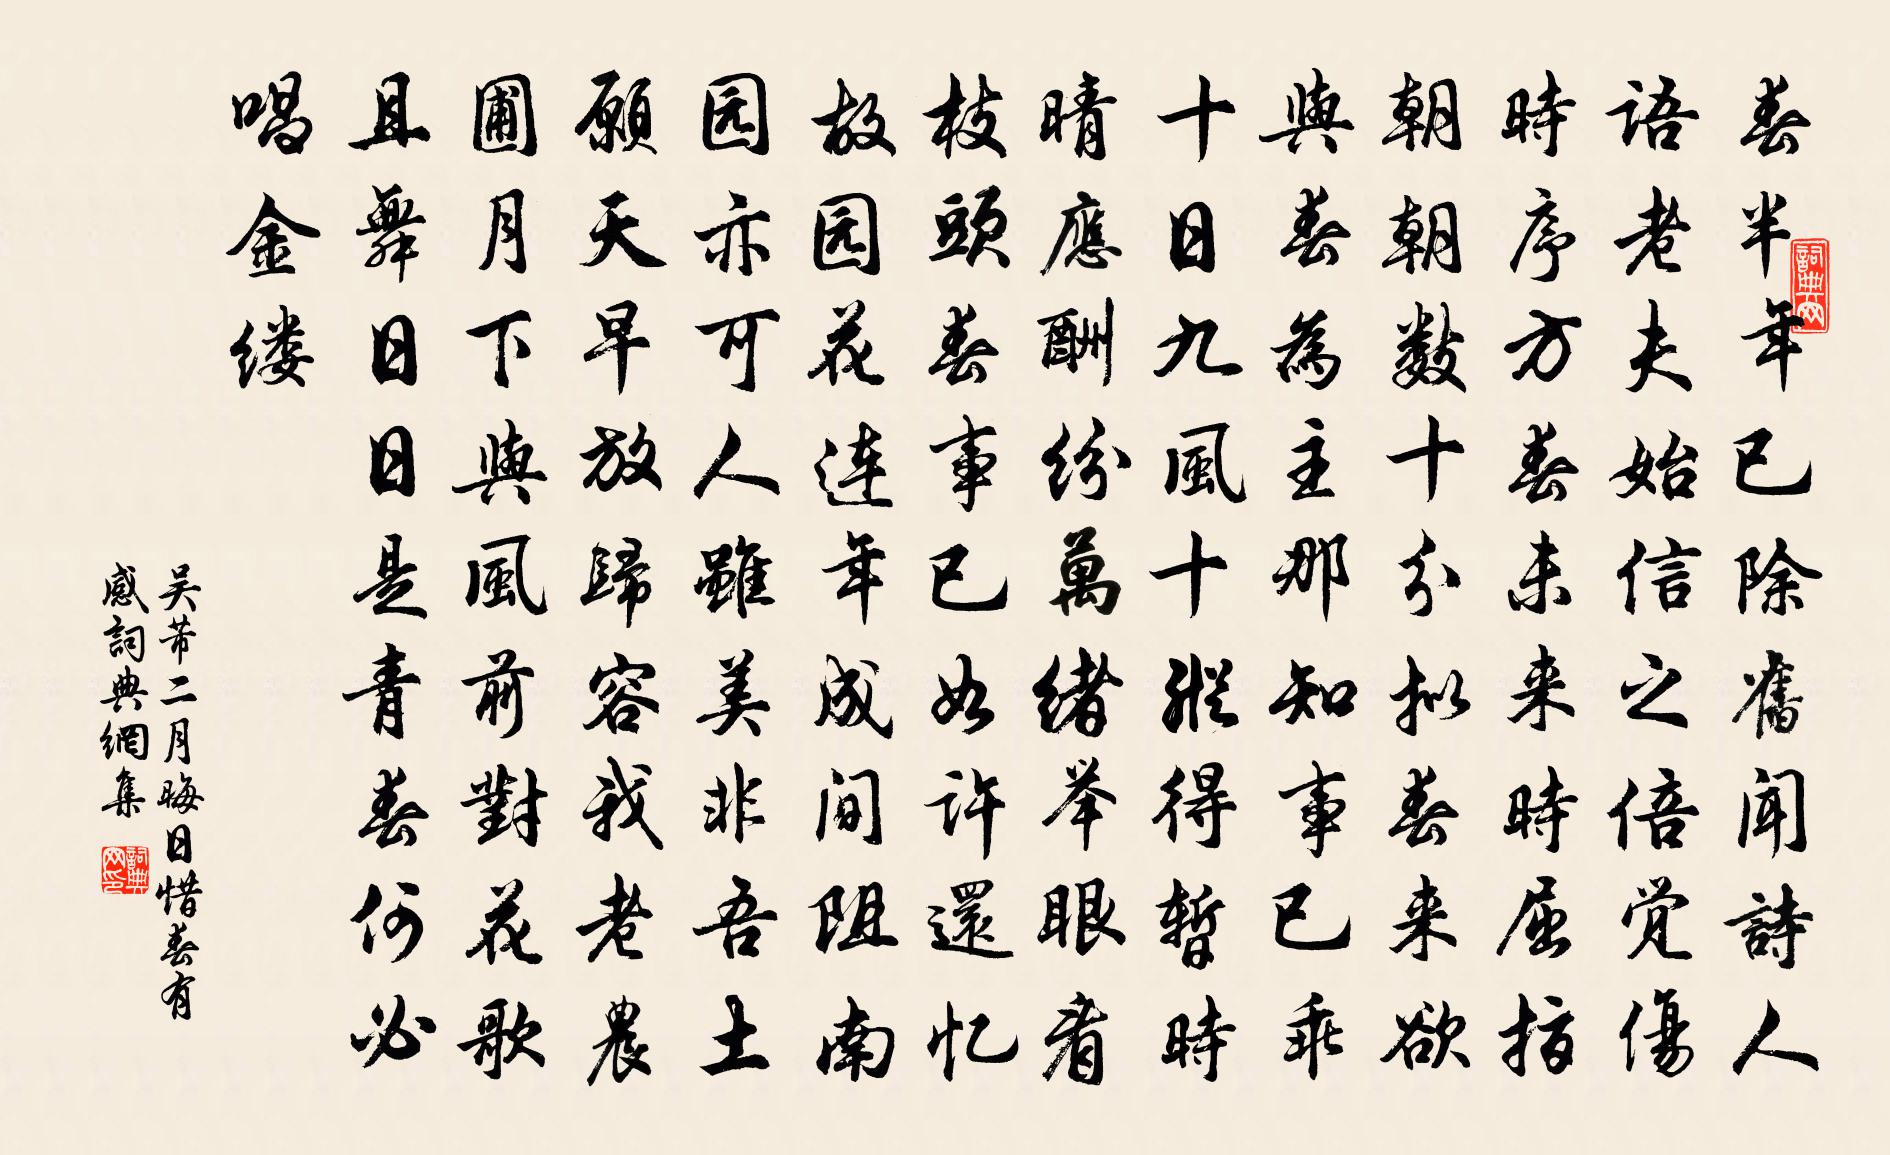 春半年已除舊闻詩人
語老夫始信之倍觉傷
時序方春未来時屈指
朝朝数十分拟春来欲
與春為主那知事已乖
十日九風十縱得暫時
晴應酬纷萬緒举眼看
枝頭春事已如许還忆
故园花连年成间阻南
园亦可人雖美非吾土
願天早放歸容我老農
圃月下與風前對花歌
且舞日日是青春何必
唱金缕
吴芾二月晦日惜春有
感詞典網集
詞典网
詞典网印